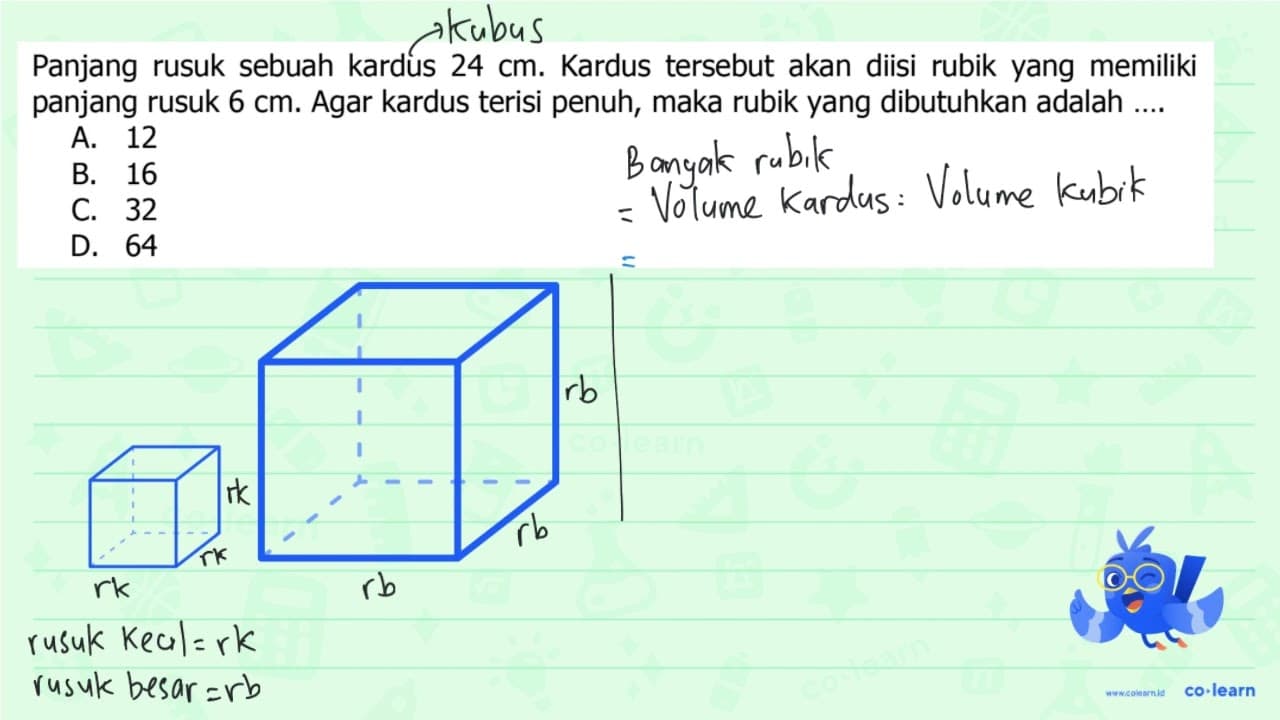 Kubus
Panjang rusuk sebuah kardus 24 cm. Kardus tersebut akan diisi rubik yang memiliki
panjang rusuk 6 cm. Agar kardus terisi penuh, maka rubik yang dibutuhkan adalah ....
A. 12
B. 16
C. 32
D. 64
Banyak rubik
= Volume Kardus : Volume Kubik
=
rb
rk
rk
rb
rk
rb
rusuk Kecil = rk
rusuk besar = rb
co-learn
co-learn
www.colearn.id co·learn